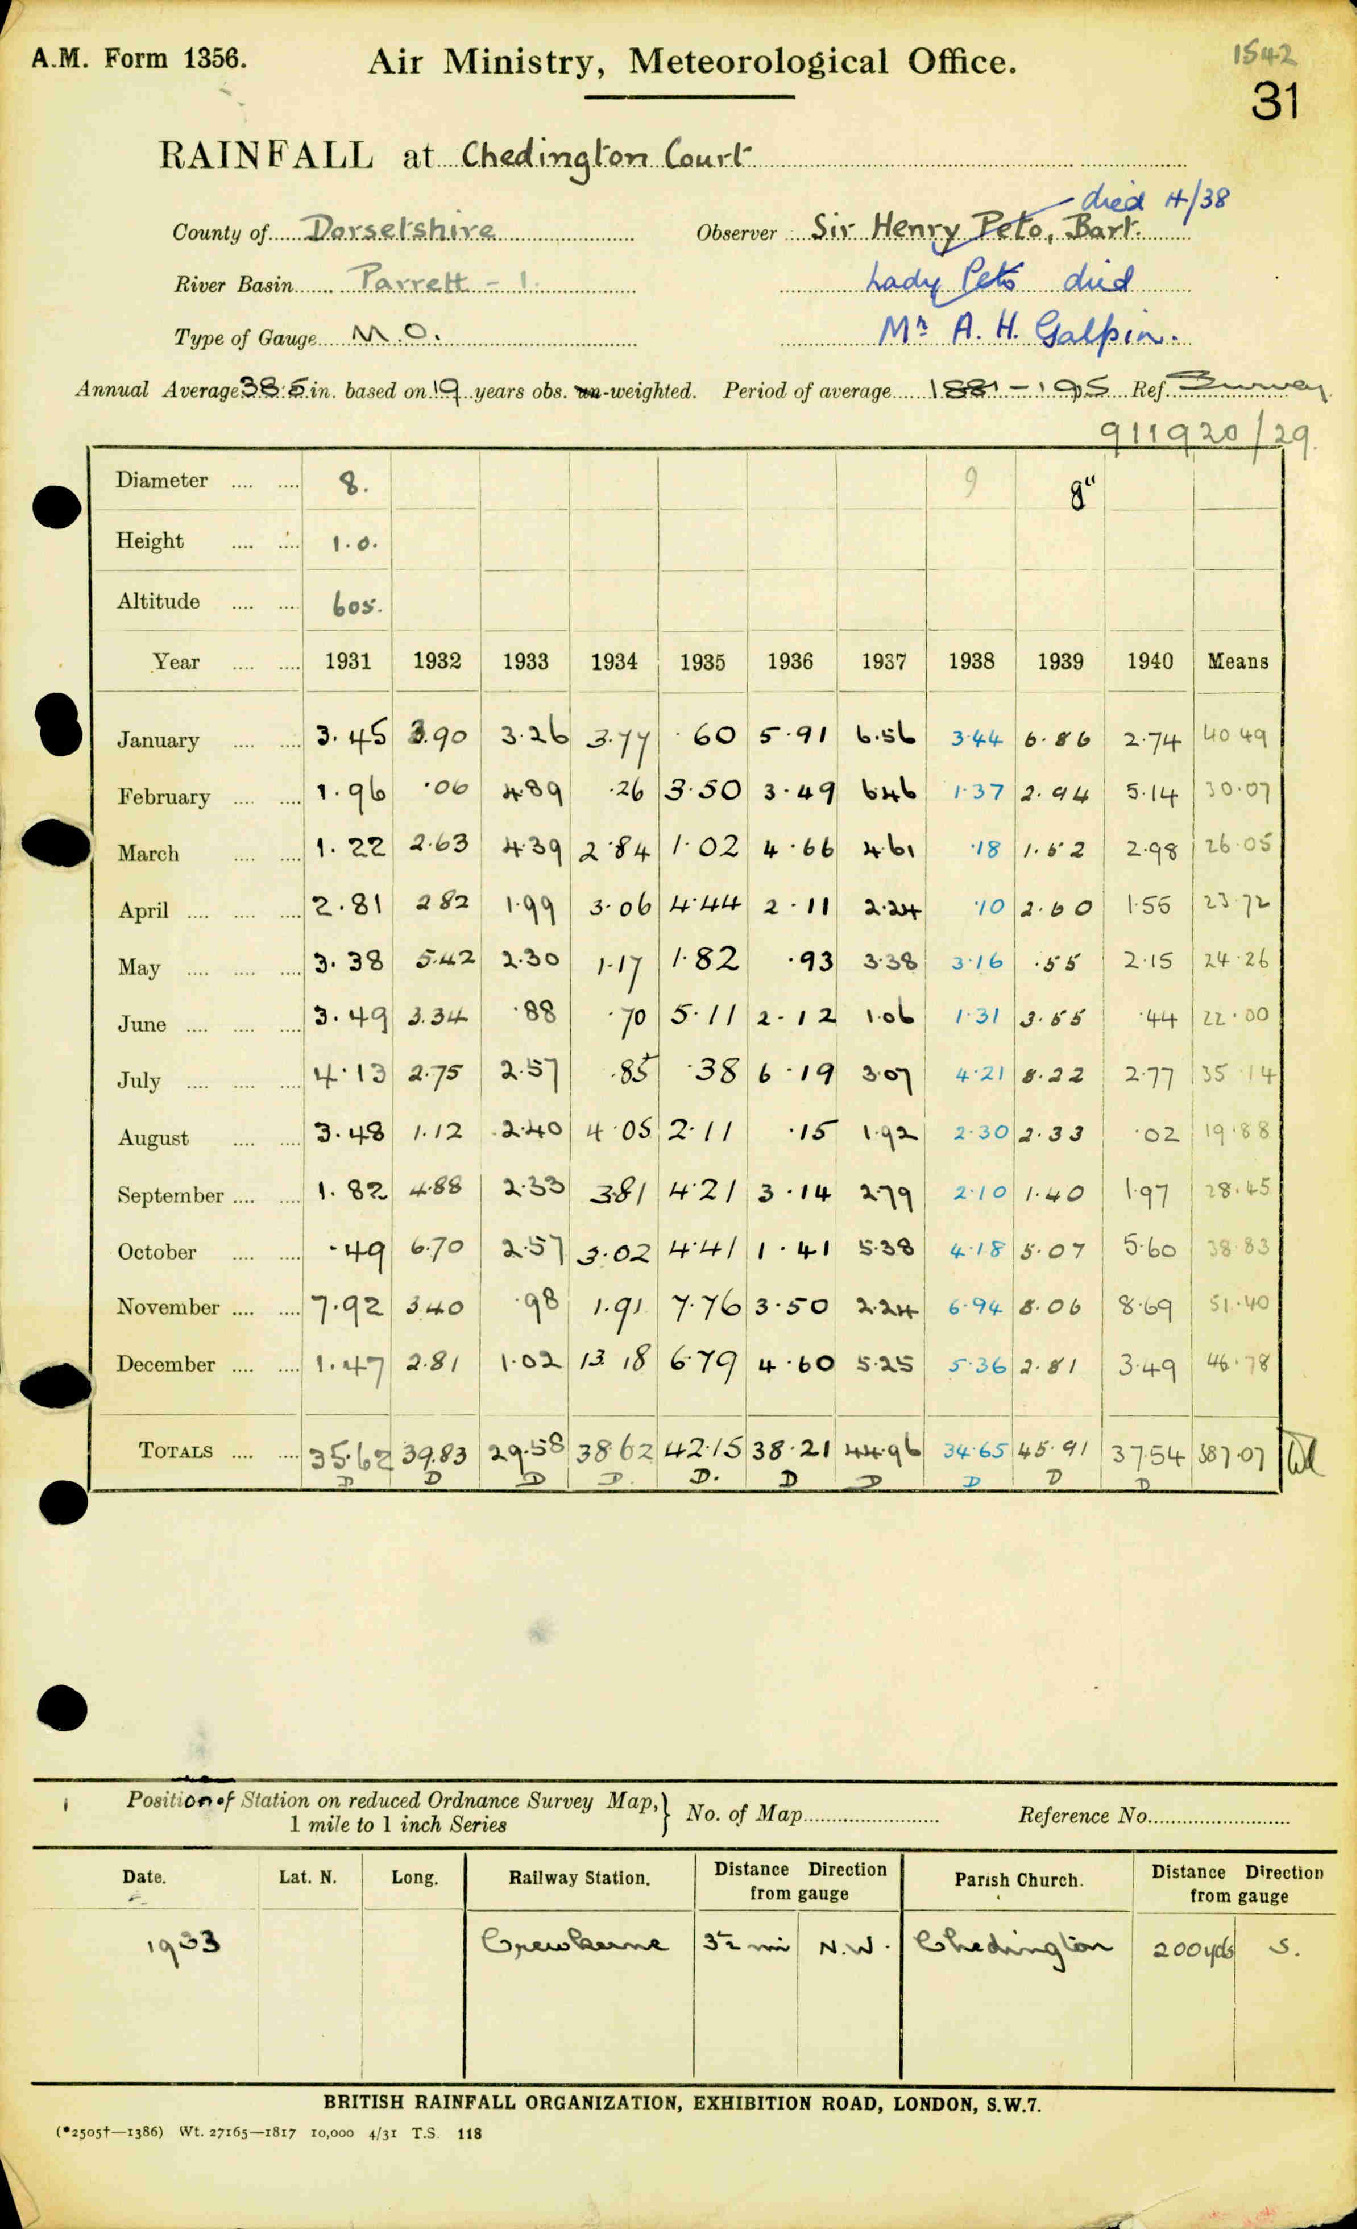 A.M. Form 1356.
Air Ministry, Meteorological Office.
1542
31
RAINFALL at Chedington Court
died 4/38
County of Dorsetshire Observer Sir Henry Peto, Bart.
River Basin Parrett - 1. Lady Peto died
Type of Gauge M.O. Mr A. H. Galpin.
Annual Average in. based on 19 years obs. un-weighted. Period of average Ref. Survey
911920/29.
Diameter 8. 9 8"
Height 1.0.
Altitude 605.
Year 1931 1932 1933 1934 1935 1936 1937 1938 1939 1940 Means
January 3.45 3.90 3.26 3.77 .60 5.91 6.56 3.44 6.86 2.74 40 49
February 1.96 .06 4.89 .26 3.50 3.49 6.46 1.37 2.94 5.14 30.07
March 1.22 2.63 4.39 2.84 1.02 4.66 4.61 .18 1.52 2.98 26.05
April 2.81 2 82 1.99 3.06 4.44 2.11 2.24 .10 2.60 1.55 23.72
May 3.38 5.42 2.30 1.17 1.82 .93 3.38 3.16 .55 2.15 24.26
June 3.49 3.34 .88 .70 5.11 2.12 1.06 1.31 3.55 .44 22.00
July 4.13 2.75 2.57 .85 .38 6.19 3.07 4.21 8.22 2.77 35 14
August 3.48 1.12 2.40 4.05 2.11 .15 1.92 2.30 2.33 .02 19.88
September 1.82 4.88 2.33 3.81 4.21 3.14 2.79 2.10 1.40 1.97 28.45
October .49 6.70 2.57 3.02 4.41 1.41 5.38 4.18 5.07 5.60 38.83
November 7.92 3.40 .98 1.91 7.76 3.50 2.24 6.94 8.06 8.69 51.40
December 1.47 2.81 1.02 13 18 6.79 4.60 5.25 5.36 2.81 3.49 46.78
TOTALS 35.62 39.83 29.58 38 62 42.15 38.21 44.96 34.65 45.91 37.54 387.07
D D D D. D. D D D D D
Position of Station on reduced Ordnance Survey Map, No. of Map Reference No.
1 mile to 1 inch Series
Date. Lat. N. Long. Railway Station. Distance Direction from gauge Parish Church. Distance Direction from gauge
1933 Crewkerne 3½ mi N.W. Chedington 200yds S.
BRITISH RAINFALL ORGANIZATION, EXHIBITION ROAD, LONDON, S.W.7.
(*2505†—1386) Wt. 27165—1817 10,000 4/31 T.S. 118